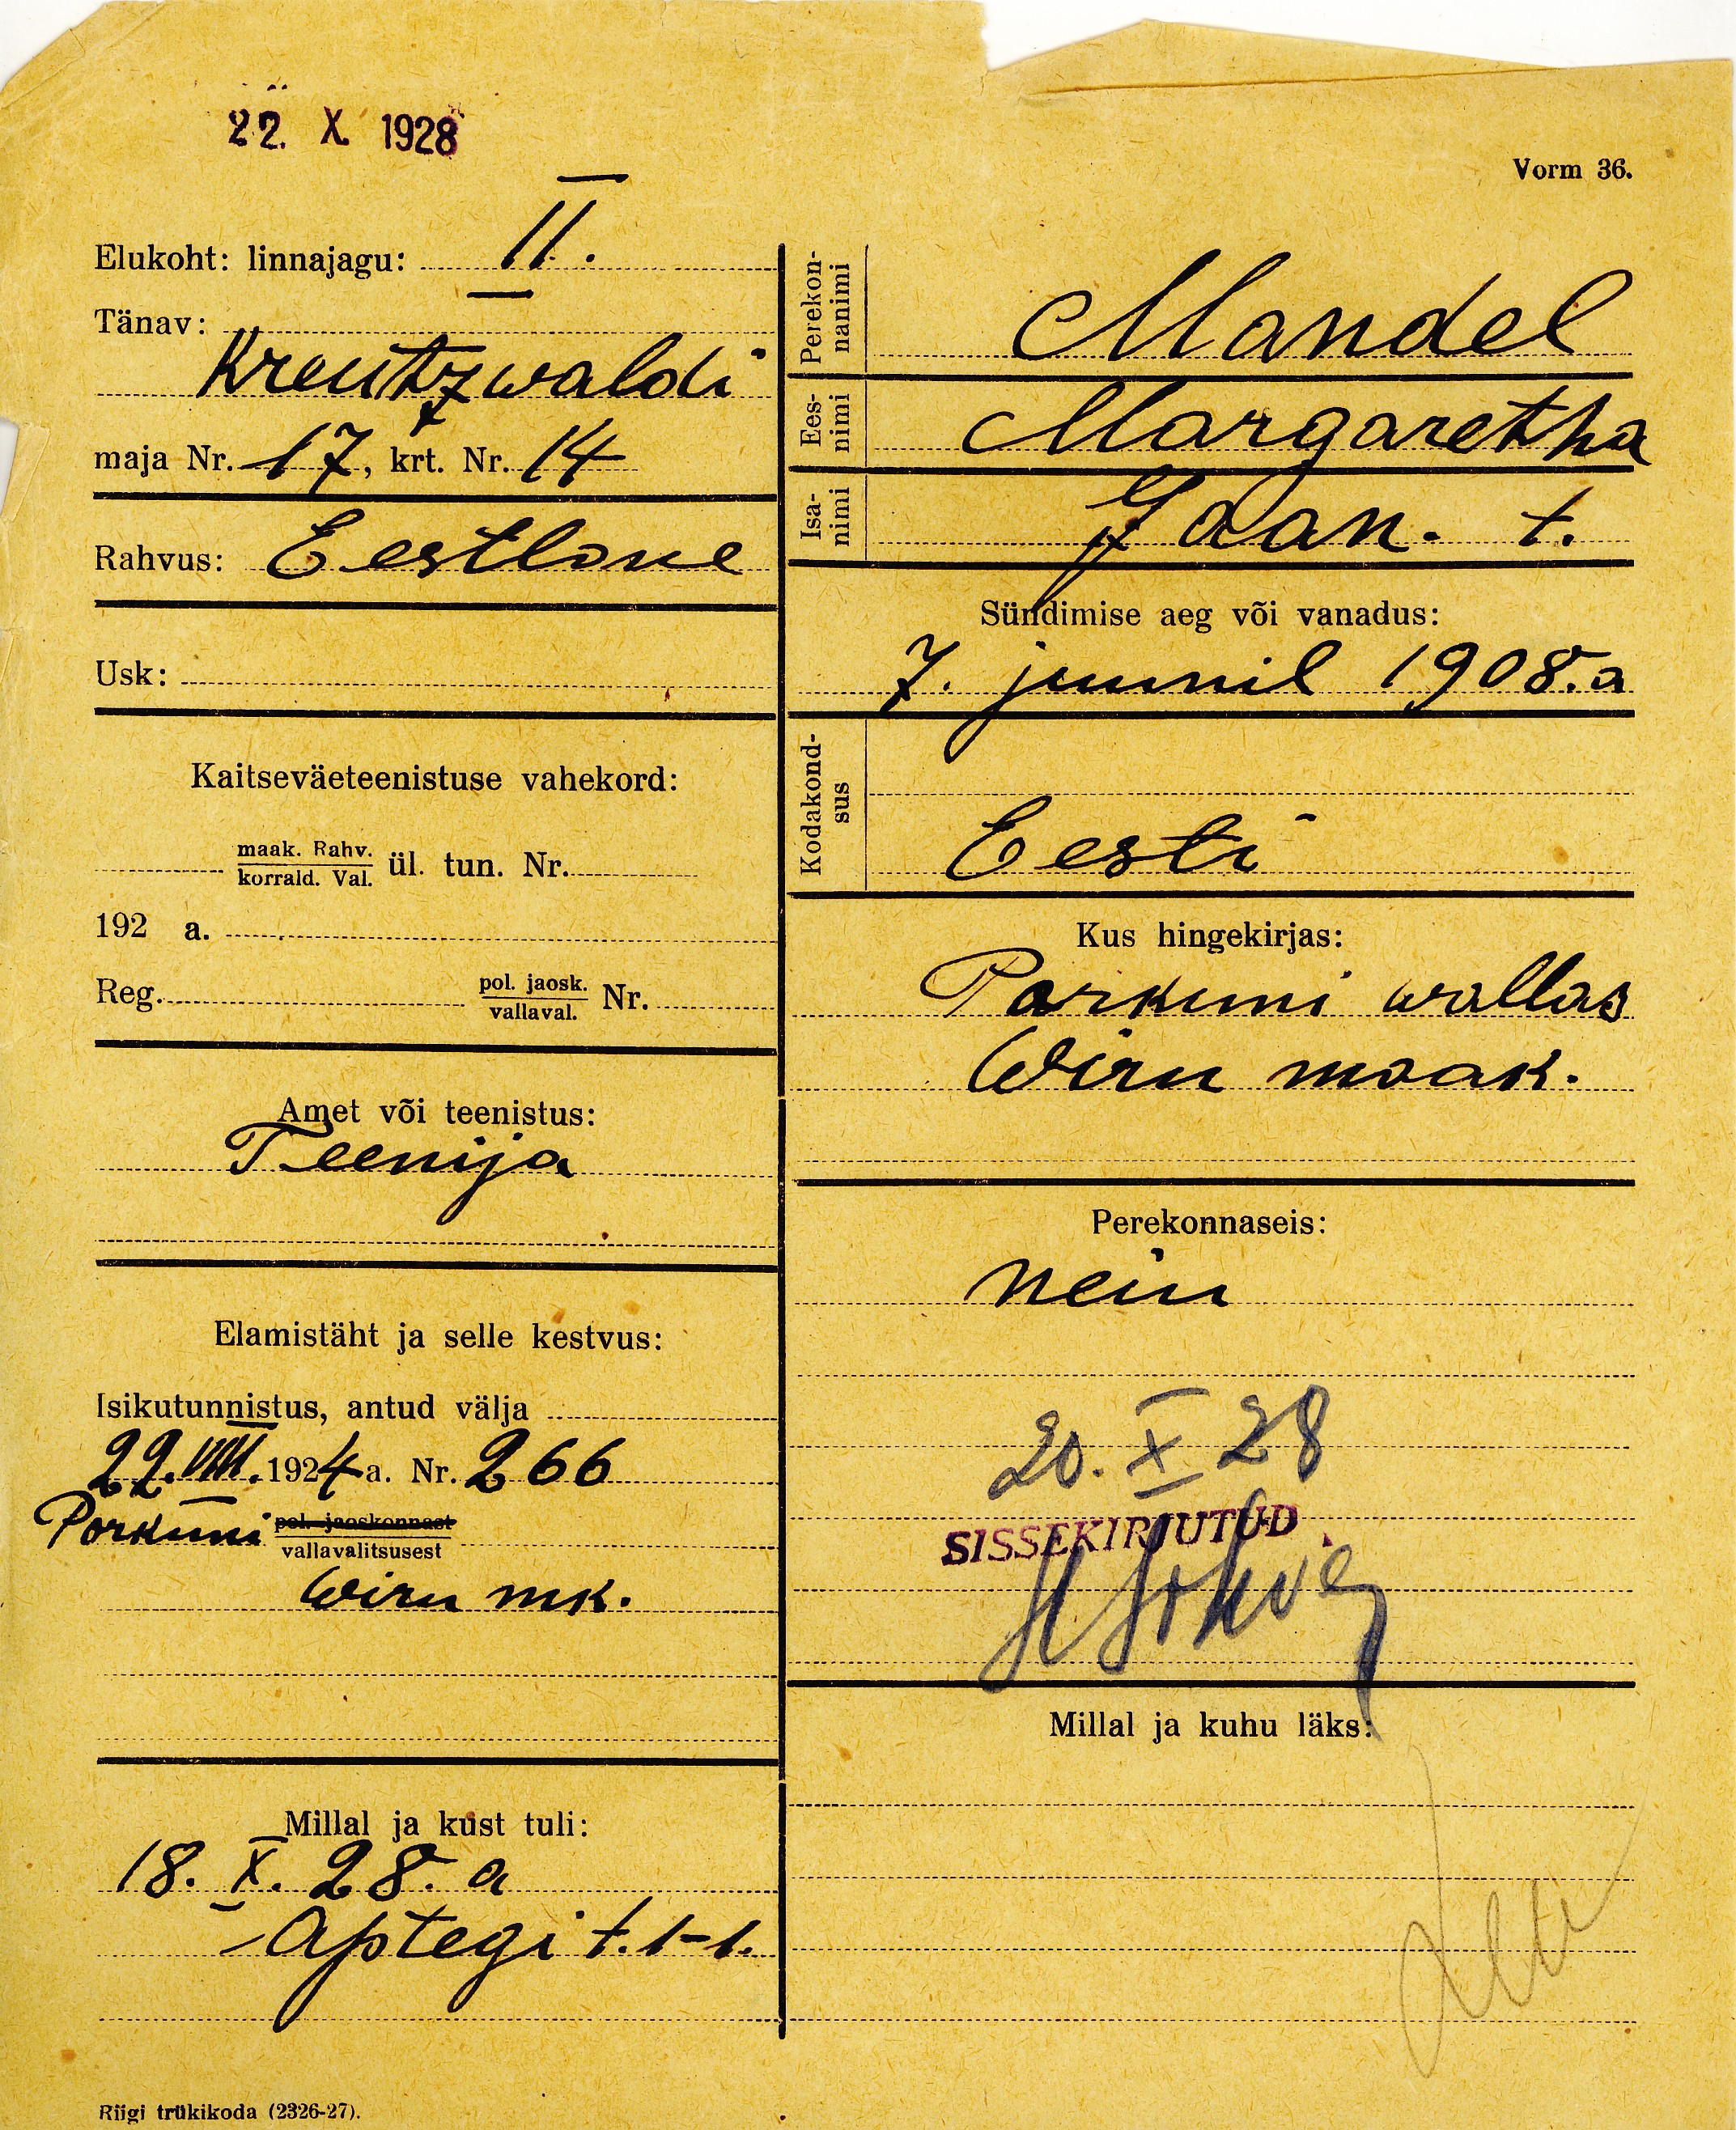 22. X. 1928
Vorm 36.
Elukoht: linnajagu: II.
Tänav:
Kreutzwaldi
maja Nr. 17, krt. Nr. 14
Rahvus: Eestlane
Usk:
Kaitseväeteenistuse vahekord:
maak. Rahv.
korrald. Val. ül. tun. Nr.
192 a.
Reg. pol. jaosk.
vallaval. Nr.
Amet või teenistus:
Teenija
Elamistäht ja selle kestvus:
Isikutunnistus, antud välja
22. VIII. 1924 a. Nr. 266
Porkuni pol. jaoskonnast
vallavalitsusest
Wiru mk.
Millal ja kust tuli:
18. X. 28. a
Aptegi t. 1-1.
Riigi trükikoda (2326-27).
Perekon-
nanimi
Mandel
Ees-
nimi
Margaretha
Isa-
nimi
Jaan. t.
Sündimise aeg või vanadus:
7. juunil 1908. a
Kodakond-
sus
Eesti
Kus hingekirjas:
Porkuni wallas
Wiru maak.
Perekonnaseis:
neiu
20. X 28
SISSEKIRJUTUD.
Millal ja kuhu läks: